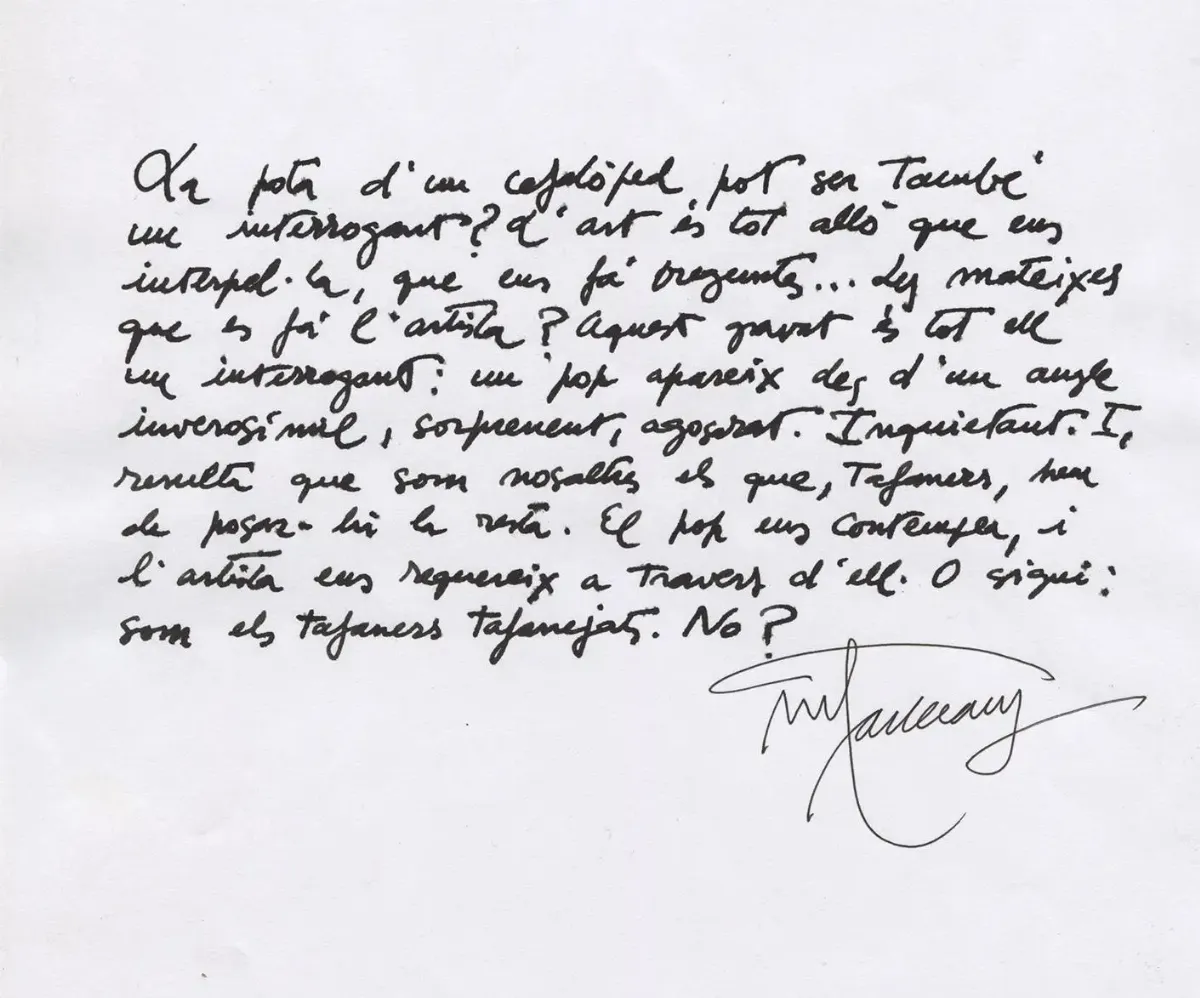 La pota d'un cefalòped, pot ser També
un interrogant? L'art és tot allò que ens
interpel·la, que ens fá preguntes... Les mateixes
que es fá l'artista? Aquest gravat és tot ell
un interrogant: un pop apareix des d'un angle
inverosímil, sorprenent, agosarat. Inquietant. I,
resulta que som nosaltres els que, Tafaners, hem
de posar-hi la resta. El pop ens contempla, i
l'artista ens requereix a Través d'ell. O sigui:
som els tafaners tafanejats. No?